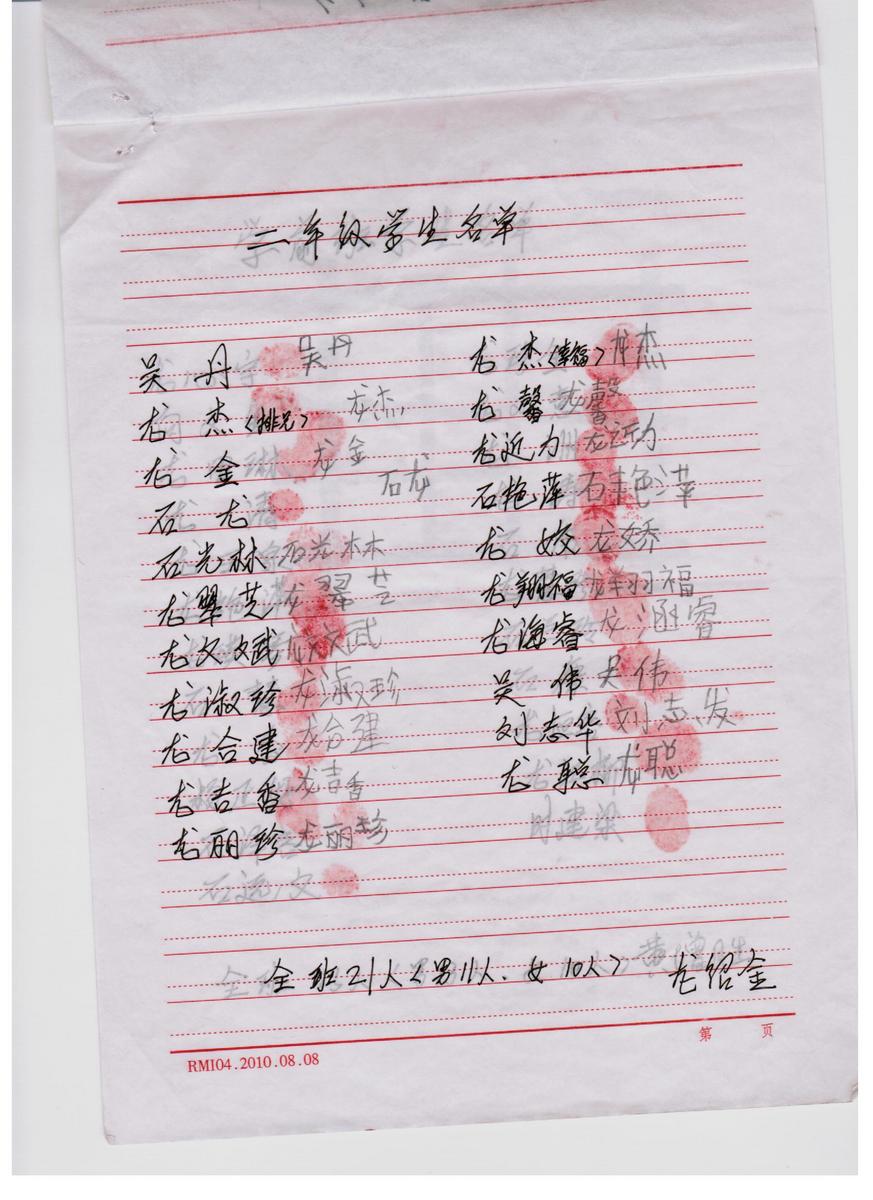 二年级学生名单
吴丹 吴丹
龙杰(排兄) 龙杰
龙金 龙金
石龙 石龙
石光林 石光林
龙翠芝 龙翠芝
龙文斌 龙文武
龙淑珍 龙淑珍
龙合建 龙合建
龙吉香 龙吉香
龙丽珍 龙丽珍
龙杰(幸福) 龙杰
龙馨 龙馨
龙近力 龙近力
石艳萍 石艳萍
龙姣 龙娇
龙翔福 龙翔福
龙海睿 龙涵睿
吴伟 吴伟
刘志华 刘志发
龙聪 龙聪
全班21人(男11人、女10人) 龙绍金
第 页
RMI04.2010.08.08